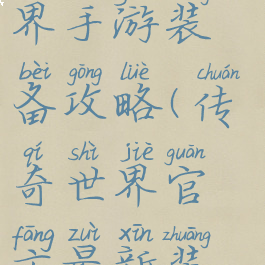 界手游装
bèi gōng lüè chuán
备攻略(传
qí shì jiè guān
奇世界官
fāng zuì xīn zhuāng
方最新装